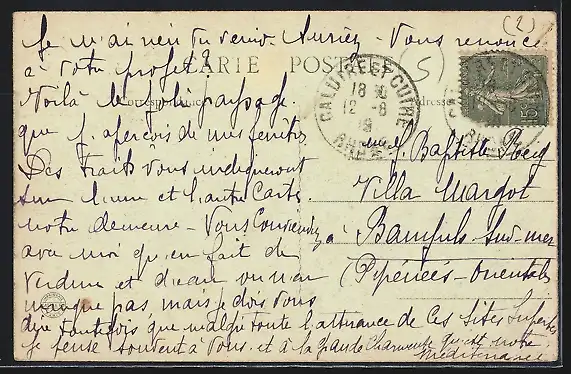 (2)
Je n'ai rien vu venir. Auriez-vous renoncé
à votre projet?
CARTE POSTALE
(5)
Voilà le joli paysage
Correspondance
Adresse
que j'aperçois de mes fenêtres
CALUIRE ET CUIRE
18
12 - 8
19
RHONE
15c
Des traits vous indiqueront
sur l'une et l'autre Carte
notre demeure - Vous Conviendrez
avec moi qu'en fait de
verdure et d'eau on n'en
manque pas, mais je dois vous
dire toutefois que malgré toute l'attirance de Ces Sites Superbes
je pense souvent à vous et à la grande Charmeuse qu'est notre
Méditerranée
J. Baptiste
Villa Margot
à Banyuls-sur-mer
(Pyrénées-Orientales